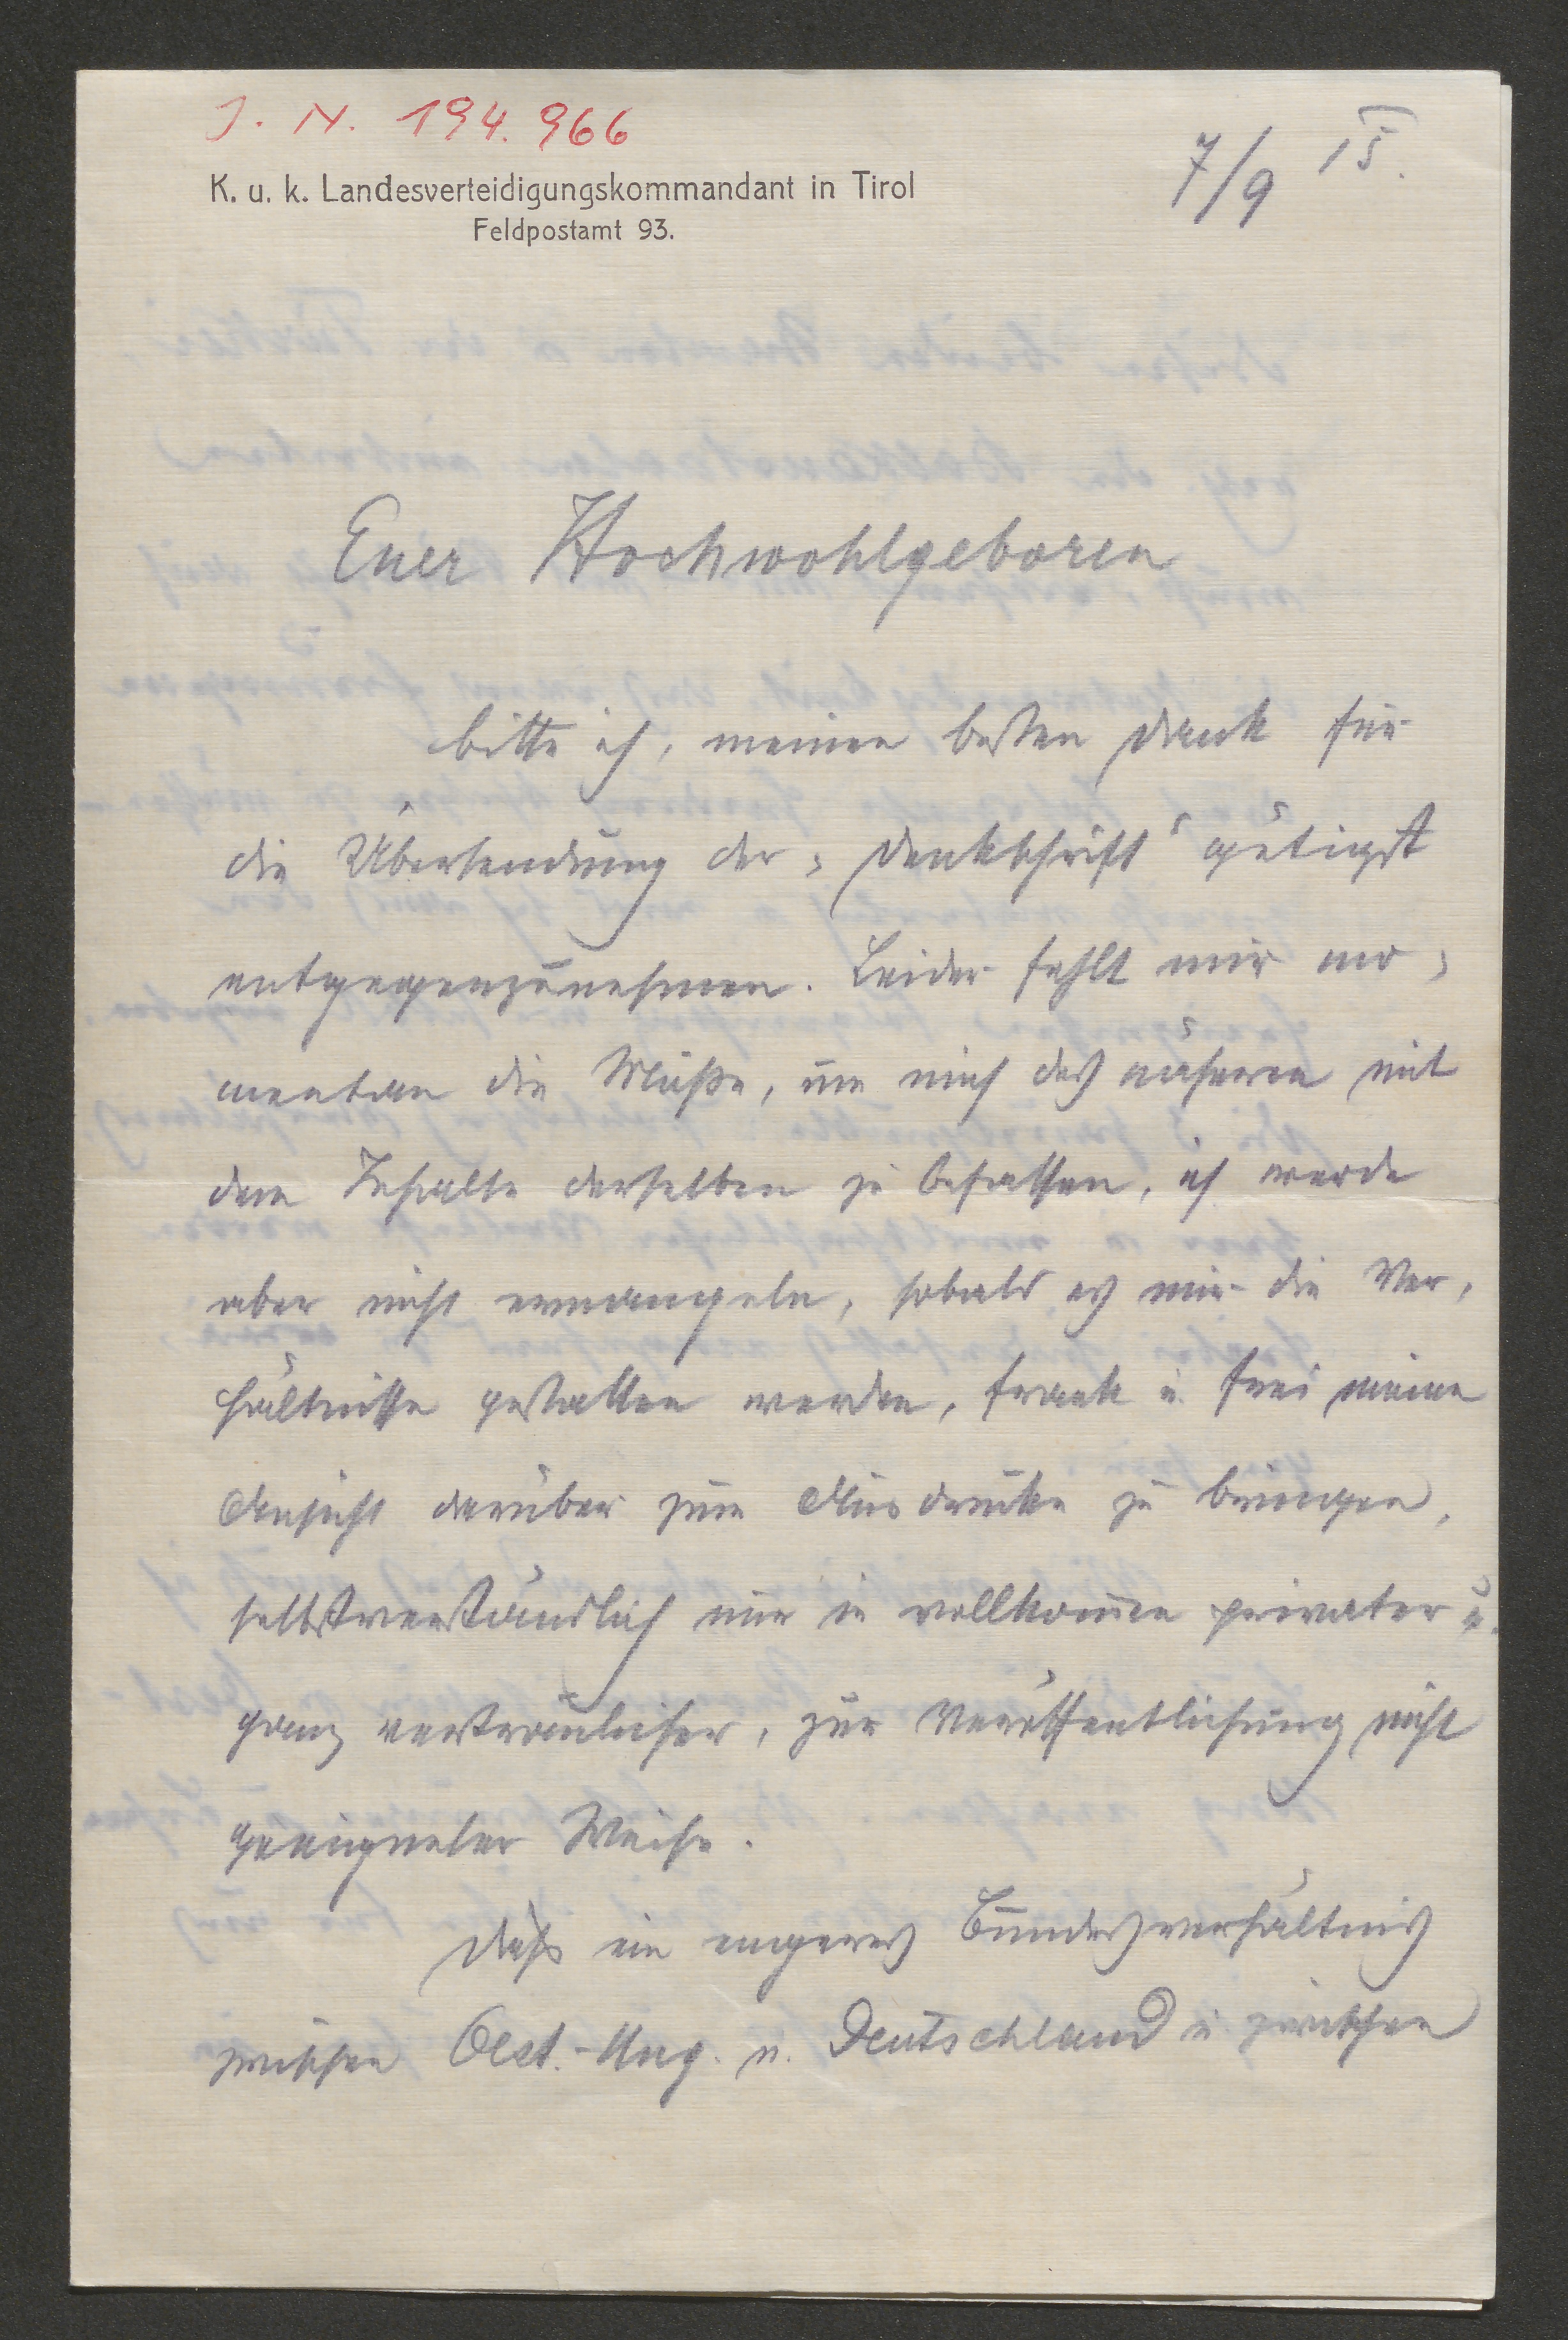 J. N. 194.966
7/9 15.
K. u. k. Landesverteidigungskommandant in Tirol
Feldpostamt 93.
Euer Hochwohlgeboren
bitte ich, meinen besten Dank für
die Übersendung der „Denkschrift“ gütigst
entgegenzunehmen. Leider fehlt mir mo-
mentan die Muße, um mich des näheren mit
dem Inhalte derselben zu befassen, ich werde
aber nicht ermangeln, sobald es mir die Ver-
hältnisse gestatten werden, frank u. frei meine
Ansicht darüber zum Ausdrucke zu bringen,
selbstverständlich nur in vollkommen privater u.
ganz vertraulicher, zur Veröffentlichung nicht
geeigneter Weise.
Daß ein engeres Bundesverhältnis
zwischen Oest.-Ung. u. Deutschland u. zwischen